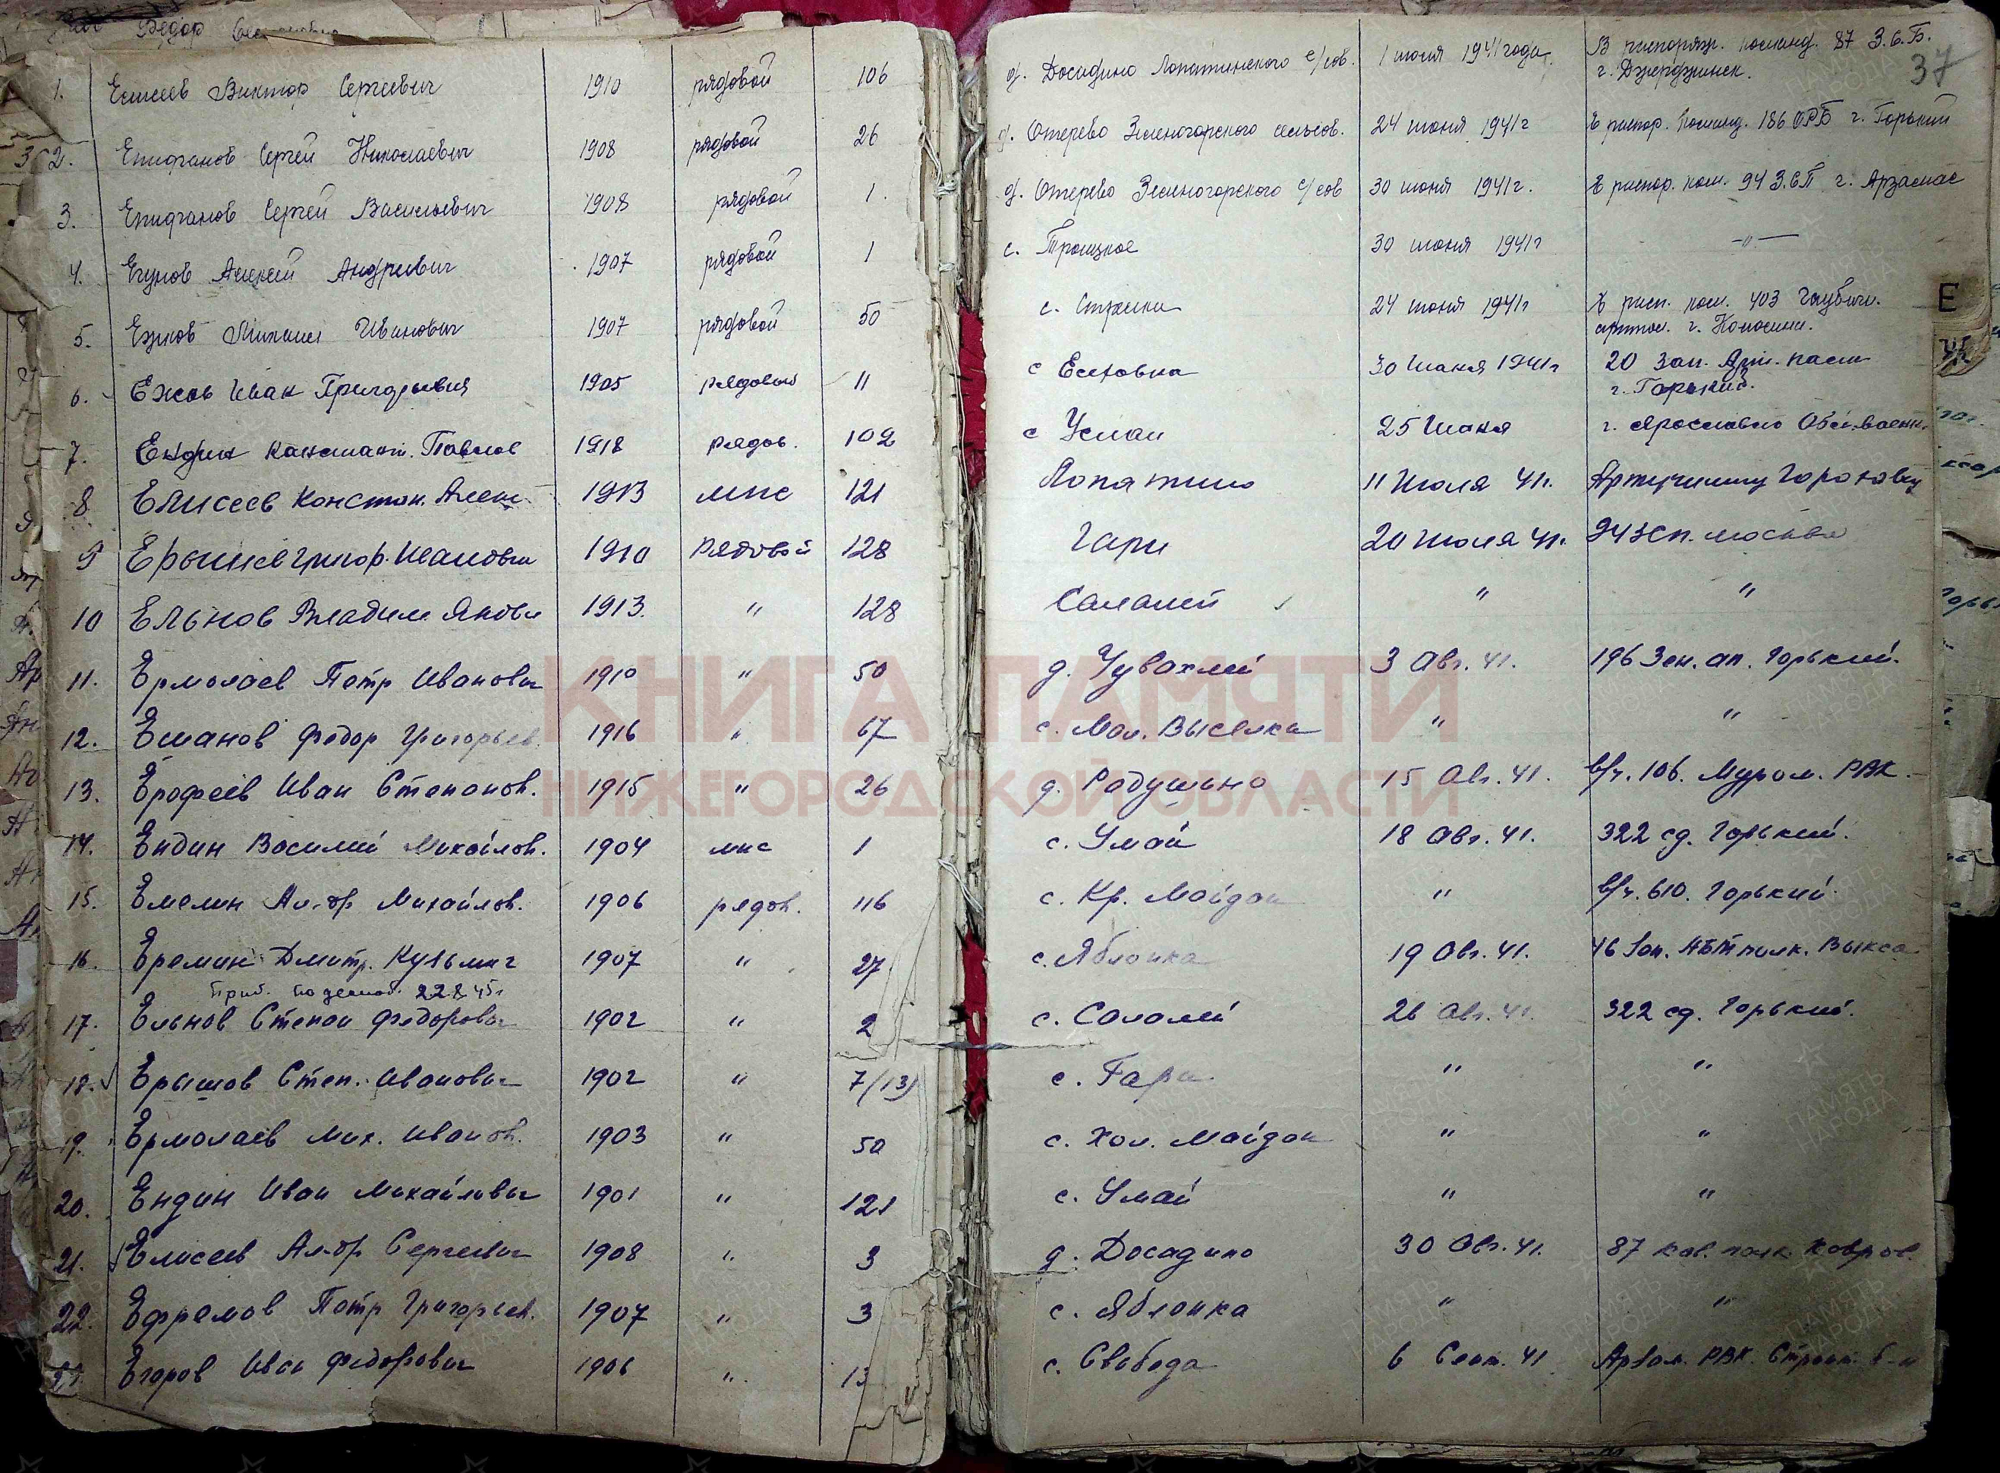 Федор
37
1. Елисеев Виктор Сергеевич 1910 рядовой 106 д. Досадино Лопатинского с/сов. 1 июля 1941 года В распоряж. команд. 87 З.С.Б.
г. Дзержинск.
2. Епифанов Сергей Николаевич 1908 рядовой 26 д. Отерево Зеленогорского сельсов. 24 июня 1941 г В распор. Команд. 186 ОРБ г. Горький
3. Епифанов Сергей Васильевич 1908 рядовой 1. д. Отерево Зеленогорского с/сов 30 июня 1941 г. В распор. ком. 94 З.СП г. Арзамас
4. Егунов Алексей Андреевич 1907 рядовой 1 с. Троицкое 30 июня 1941 г —"—
5. Ежков Михаил Иванович 1907 рядовой 50 с. Стрелка 24 июня 1941 г В расп. ком. 403
г.
6. Ежов Иван Григорьевич 1905 рядовой 11 с 30 Июня 1941 г 20 Зап. Арт. полк
г. Горький.
7. Ендин Констант. Павлов 1918 рядов. 102 с Умай 25 Июня г. Ярославль
8 Елисеев Констан. Алекс. 1913 мпс 121 Лопатино 11 Июля 41 г.
9 Ерышов Григор. Иванович 1910 Рядовой 128 Гари 20 Июля 41 г. 94 зсп. москва
10 Ельнов Владим. Яковл 1913. " 128 Салалей " "
11. Ермолаев Петр Иванович 1910 " 50 д. Чувахлей 3 Авг. 41. 196 Зен. ап. Горький.
12. Есманов Федор Григорьев. 1916 " 67 с. Мал. Выселка " "
13. Ерофеев Иван Степанов. 1915 " 26 д. Радушино 15 Авг. 41. в/ч. 106. Муром. РВК.
14. Ендин Василий Михайлов. 1904 мпс 1 с. Умай 18 Авг. 41. 322 сд. Горький.
15. Емелин Ал-др Михайлов. 1906 рядов. 116 с. Кр. Майдан " в/ч. 610. Горький
16. Еремин Дмитр. Кузьмич 1907 " 27 с. Яблонка 19 Авг. 41. 46 Зап. Авт полк. Выкса
Приб. по демоб. 22.8 45 г
17. Ельнов Степан Федорович 1902 " 2 с. Салалей 26 Авг. 41. 322 сд. Горький.
18. Ерышов Степ. Иванович 1902 " 7/13) с. Гари " "
19. Ермолаев Мих. Иванов. 1903 " 50 с. Хол. Майдан " "
20. Ендин Иван Михайлович 1901 " 121 с. Умай " "
21. Елисеев Ал-др Сергеевич 1908 " 3 д. Досадино 30 Авг. 41. 87 кав. полк Ковров.
22. Ефремов Петр Григорьев. 1907 " 3 с. Яблонка " "
Егоров Иван Федорович 1906 " 13 с. Свобода 6 Сент. 41 Арзам. РВК. Строит. б-н
Е
КНИГА ПАМЯТИ
НИЖЕГОРОДСКОЙ ОБЛАСТИ
ПАМЯТЬ НАРОДА